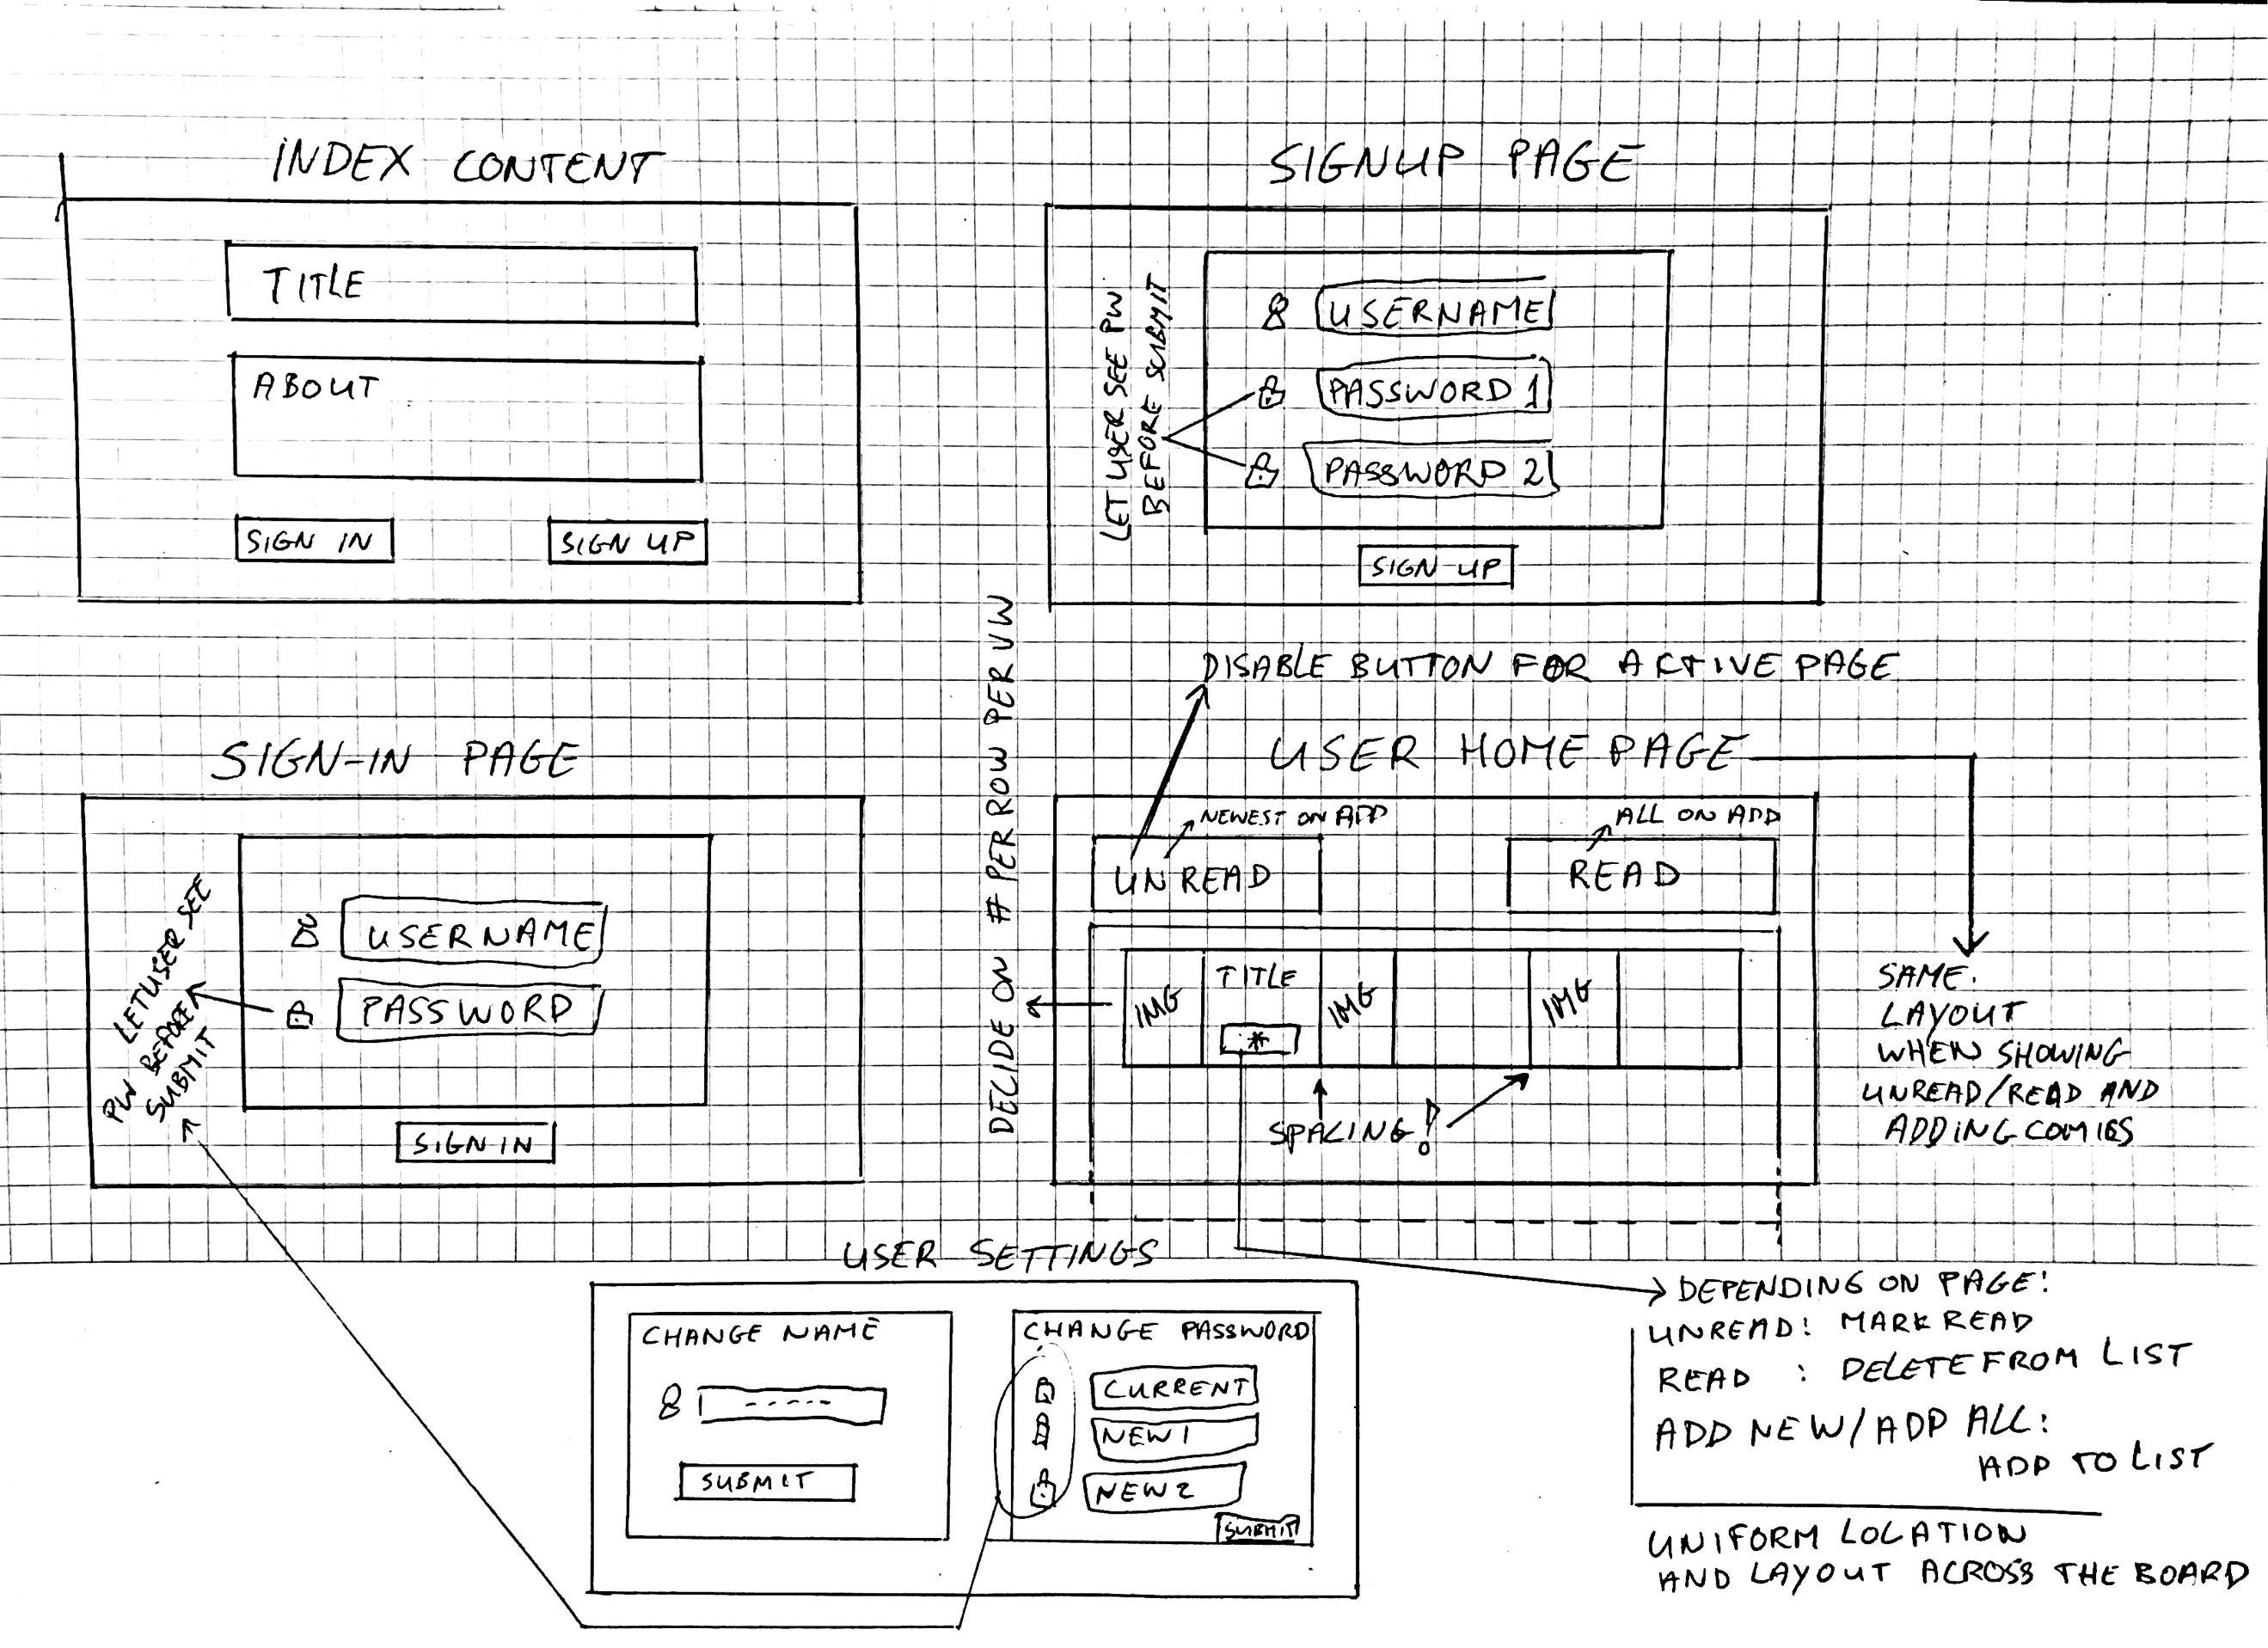 INDEX CONTENT
TITLE
ABOUT
SIGN IN
SIGN UP
SIGNUP PAGE
LET USER SEE PW
BEFORE SUBMIT
USERNAME
PASSWORD 1
PASSWORD 2
SIGN UP
SIGN-IN PAGE
LET USER SEE
PW BEFORE
SUBMIT
USERNAME
PASSWORD
SIGN IN
DECIDE ON # PER ROW PER VW
DISABLE BUTTON FOR ACTIVE PAGE
USER HOME PAGE
NEWEST ON ADD
ALL ON ADD
UNREAD
READ
IMG
TITLE
*
IMG
IMG
SPACING!
SAME
LAYOUT
WHEN SHOWING
UNREAD/READ AND
ADDING COMICS
USER SETTINGS
CHANGE NAME
-----
SUBMIT
CHANGE PASSWORD
CURRENT
NEW1
NEW2
SUBMIT
DEPENDING ON PAGE:
UNREAD: MARK READ
READ : DELETE FROM LIST
ADD NEW/ADD ALL:
ADD TO LIST
UNIFORM LOCATION
AND LAYOUT ACROSS THE BOARD